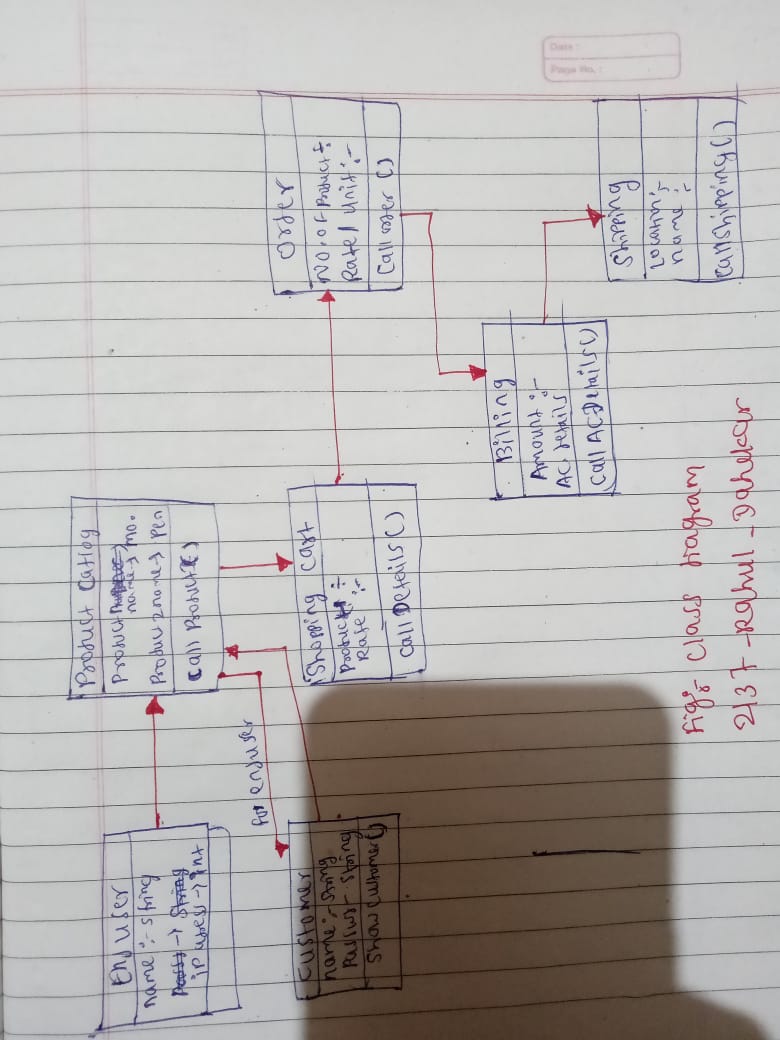 Date :
Page No. :
End user
name :- string
ip user -> int
Product Catlog
name -> mo.
Product 2 name -> pen
Call Product()
for enduser
Customer
name :- string
string
Show customer()
Shopping cart
Product :-
Rate :-
Call Details()
Order
No. of Product :-
Rate / unit :-
Call order ()
Billing
Amount :-
AC. details
Call AC Details()
Shipping
Location :-
name :-
Call Shipping()
Fig :- Class diagram
2137 - Rahul - Dahekar